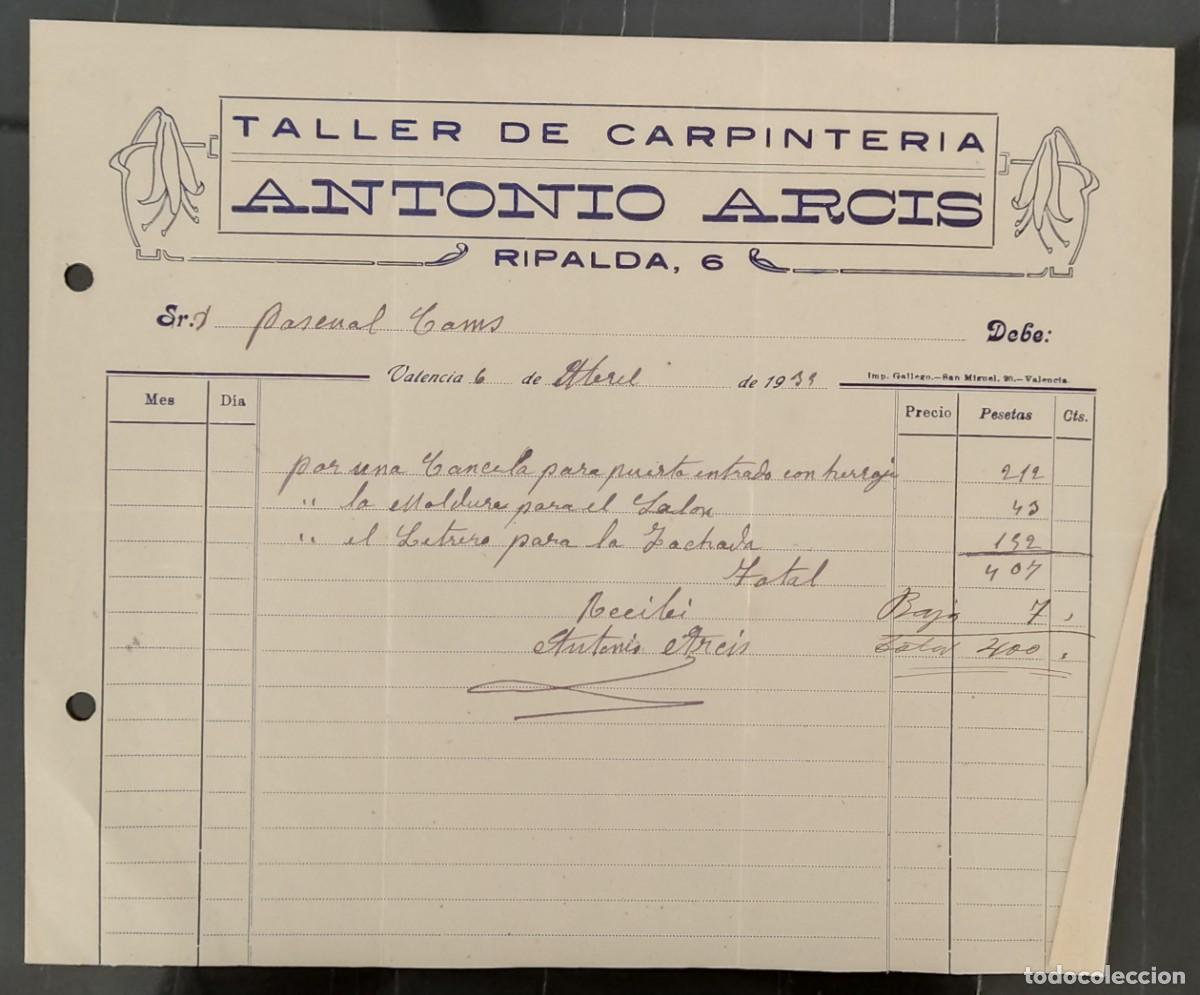 TALLER DE CARPINTERIA
ANTONIO ARCIS
RIPALDA, 6
Sr. Pascual Cams Debe:
Valencia 6 de Abril de 1939
Imp. Gallego.—San Miguel, 20.—Valencia
Mes Día Precio Pesetas Cts.
por una Cancela para puerta entrada con herraje 212
" la Moldura para el Salon 43
" el Letrero para la Fachada 152
Total 407
Recibi Baja 7,
Antonio Arcis Total 400,
todocoleccion